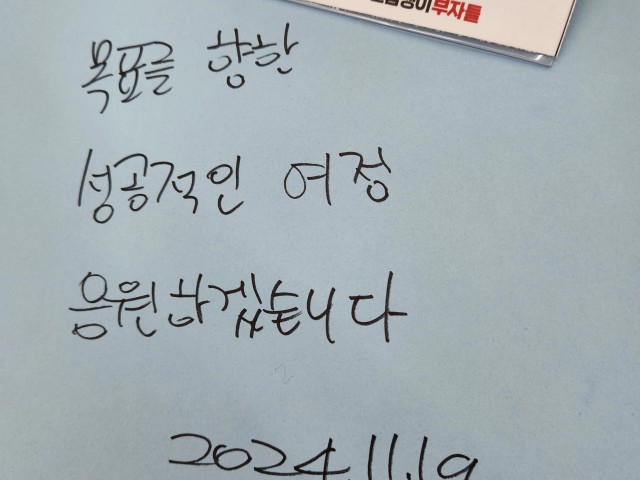 부자들
목표를 향한
성공적인 여정
응원하겠습니다
2024.11.19